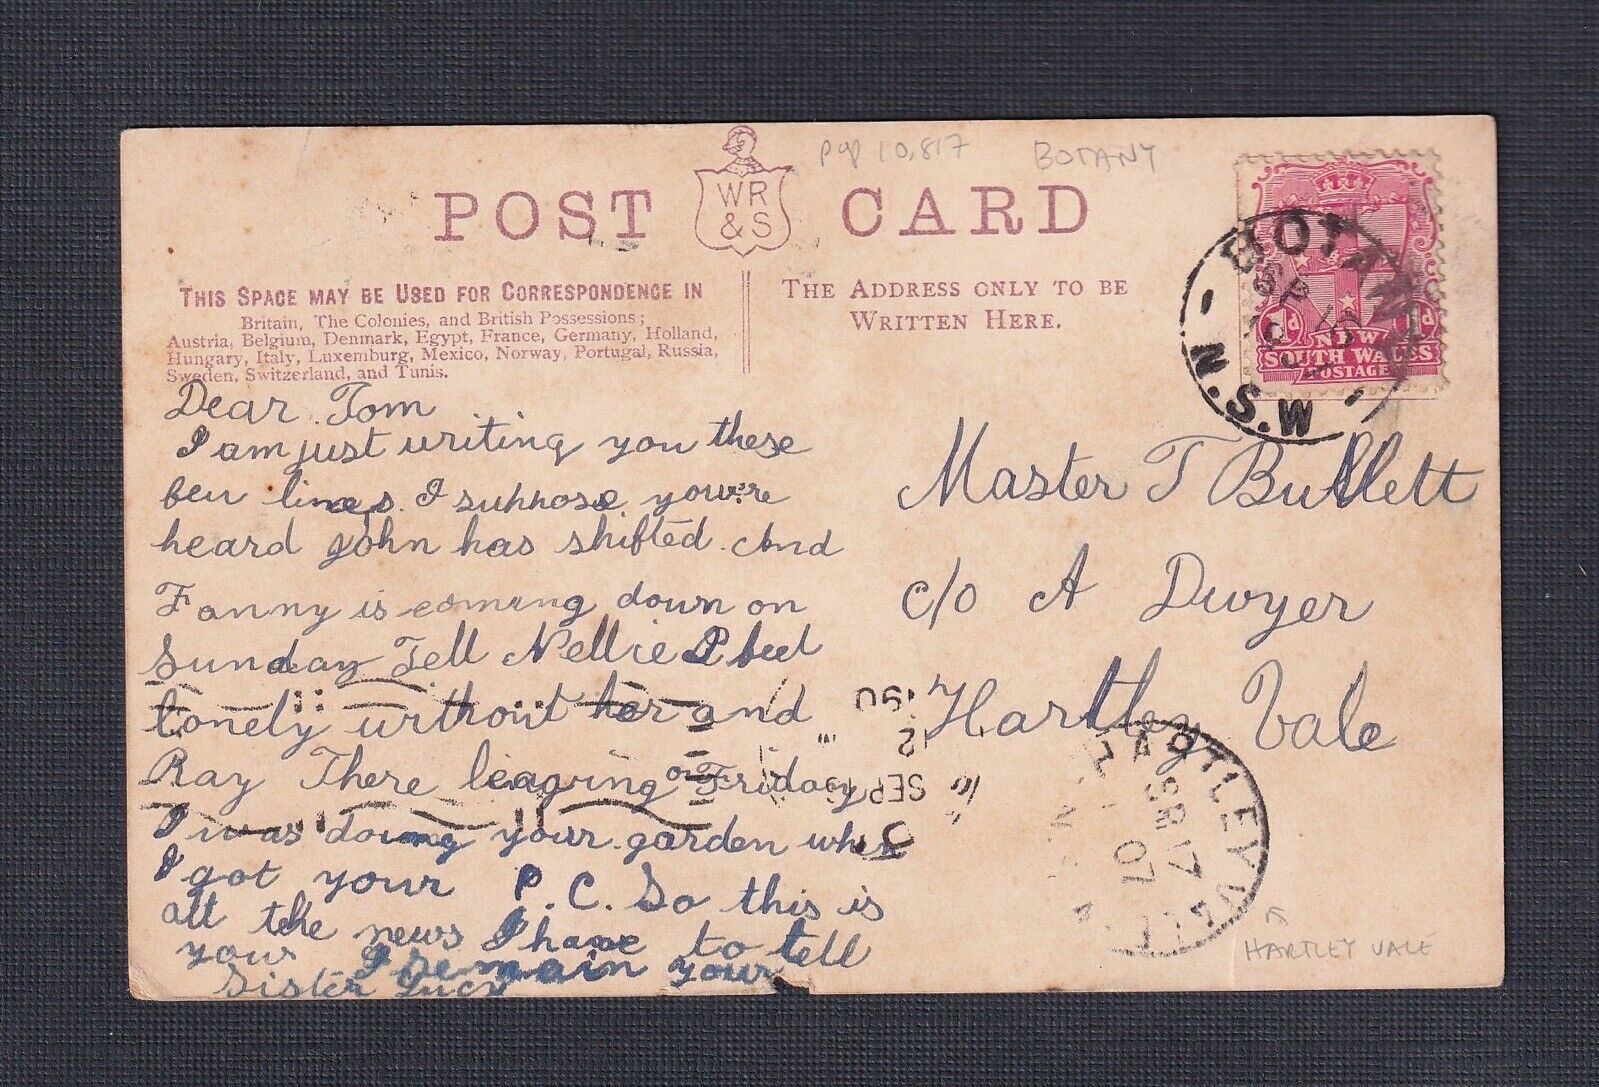 pop 10,817 BOTANY
POST CARD
WR
& S
THIS SPACE MAY BE USED FOR CORRESPONDENCE IN
Britain, The Colonies, and British Possessions;
Austria, Belgium, Denmark, Egypt, France, Germany, Holland,
Hungary, Italy, Luxemburg, Mexico, Norway, Portugal, Russia,
Sweden, Switzerland, and Tunis.
THE ADDRESS ONLY TO BE
WRITTEN HERE.
BOTANY
SP
N.S.W
NEW
SOUTH WALES
POSTAGE
Dear Tom
I am just writing you these
lines. I suppose
heard John has shifted. And
Fanny is coming down on
Sunday Tell Nellie I feel
lonely without her and
Ray There leaving on Friday
I was doing your garden when
I got your P.C. So this is
all the news I have to tell
your I remain your
Sister Lucy
Master T Bullett
c/o A Dwyer
Hartley Vale
SEP
12
HARTLEY VALE
17
07
HARTLEY VALE